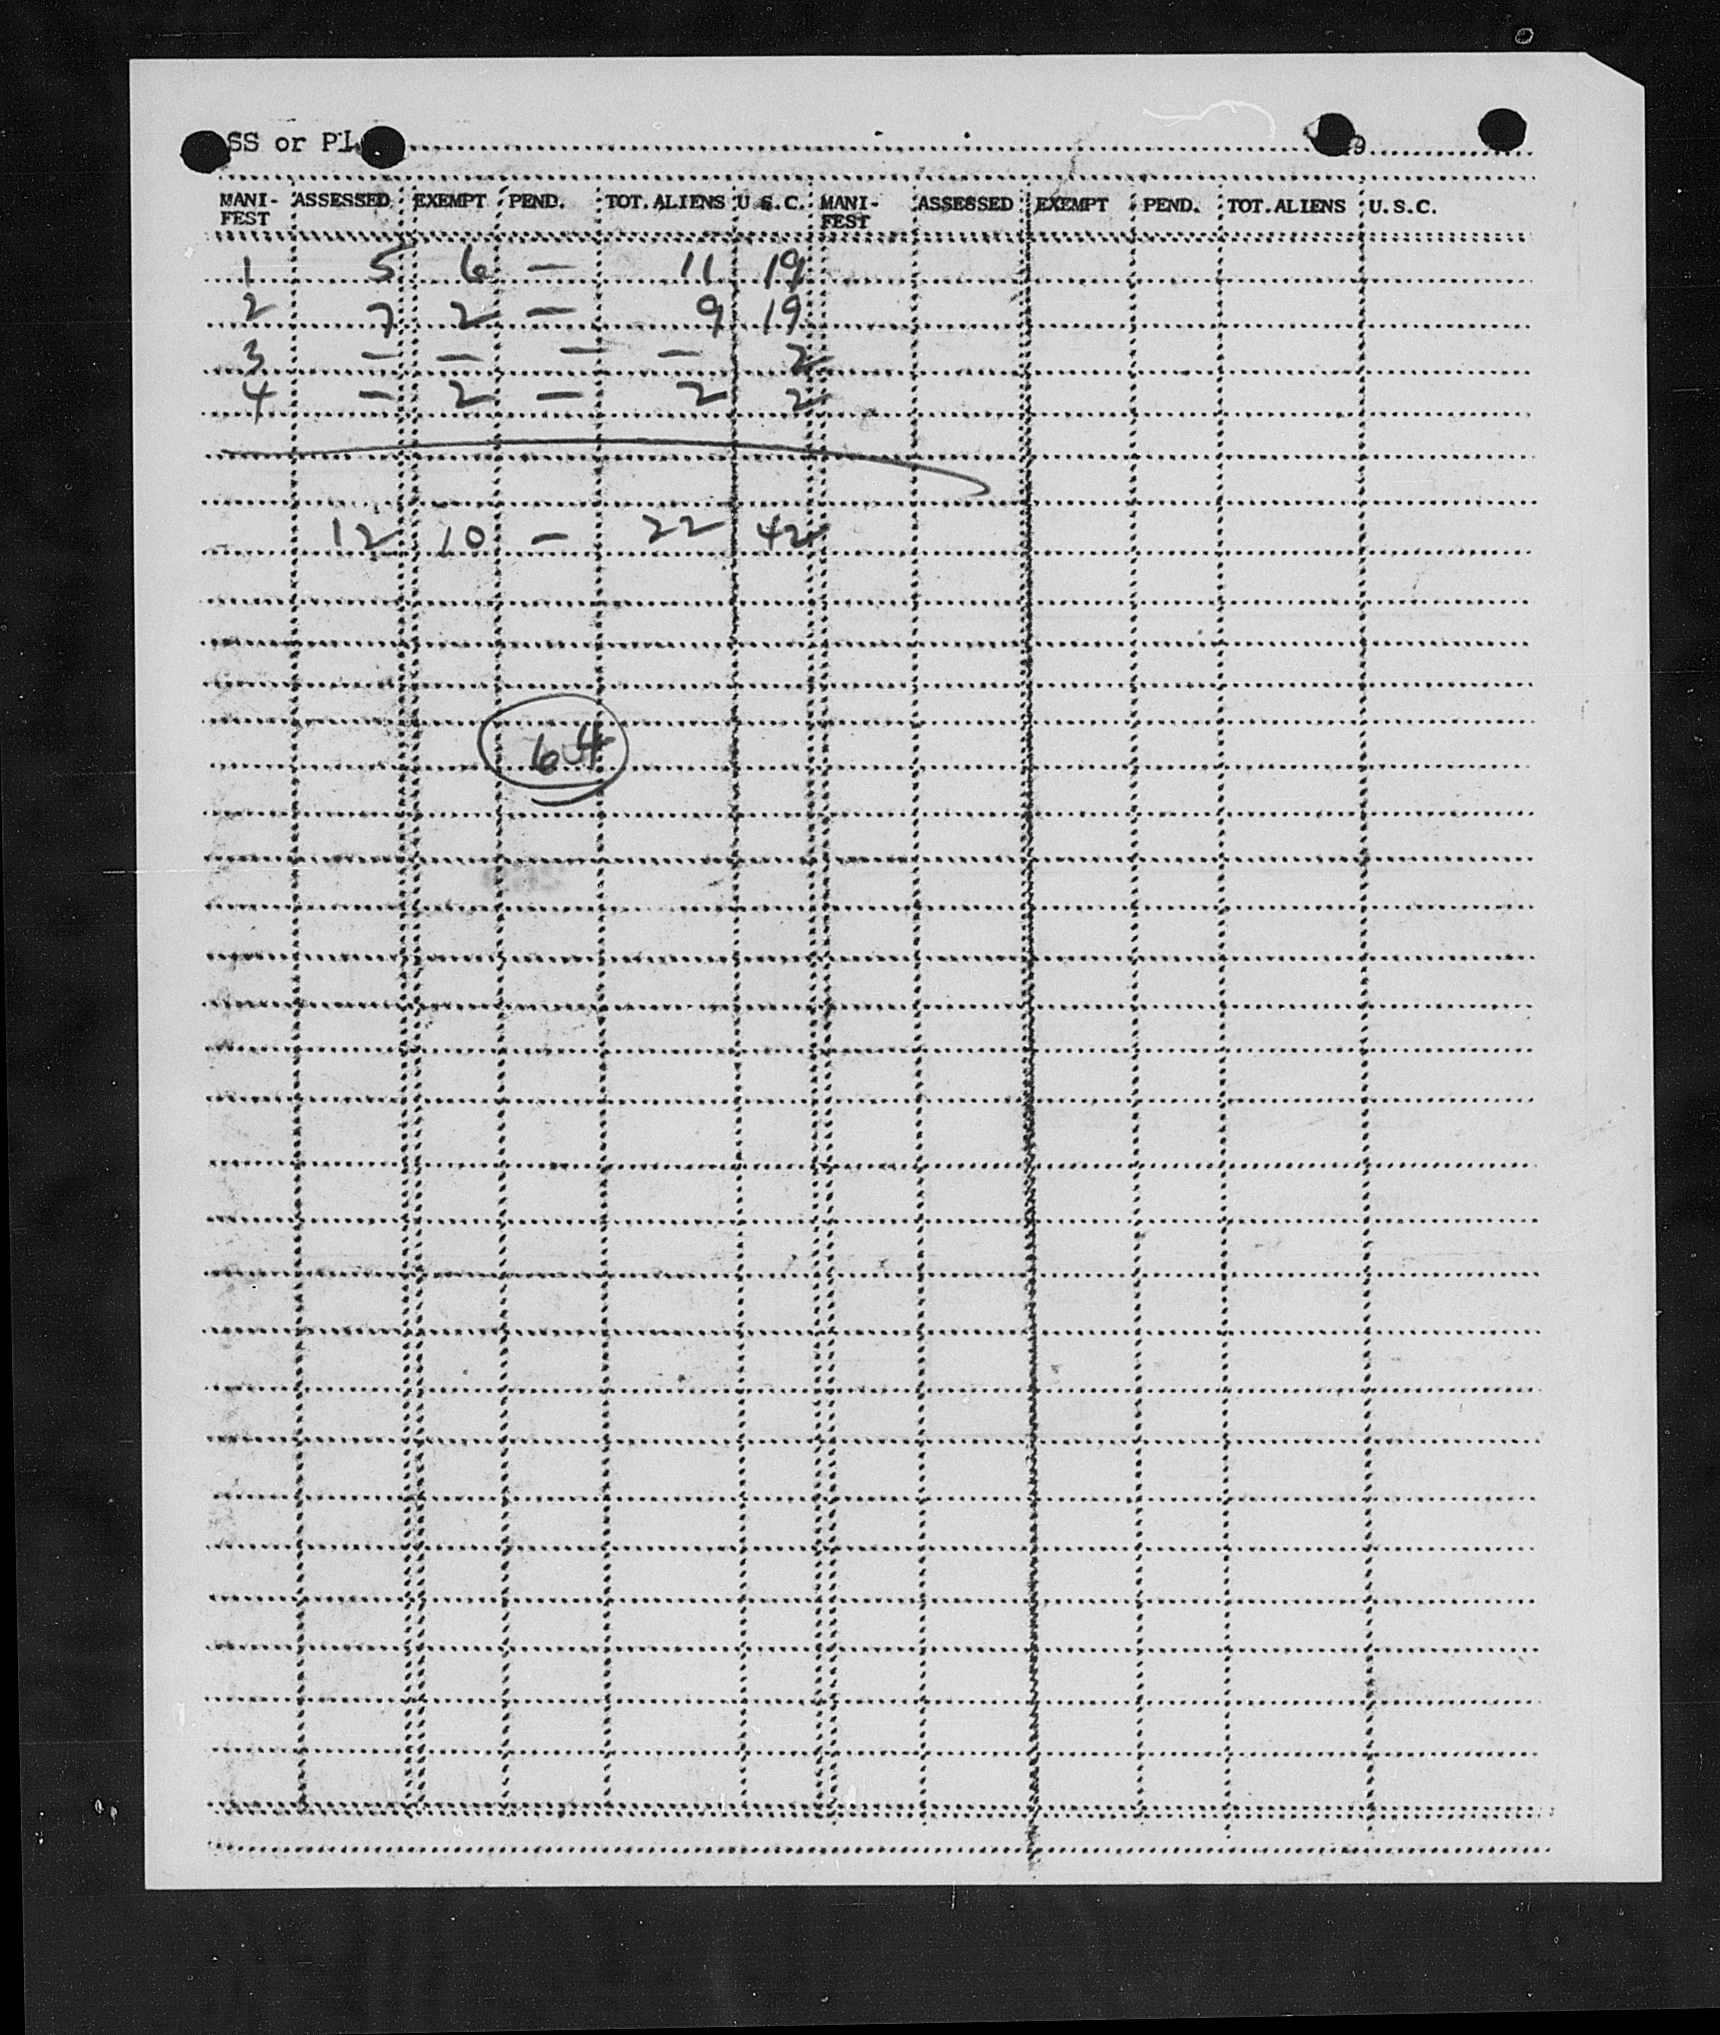 SS or Pl 19
MANI- ASSESSED EXEMPT PEND. TOT. ALIENS U.S.C. MANI- ASSESSED EXEMPT PEND. TOT. ALIENS U.S.C.
FEST FEST
1 5 6 — 11 19
2 7 2 — 9 19
3 — — — — 2
4 — 2 — 2 2
12 10 — 22 42
64